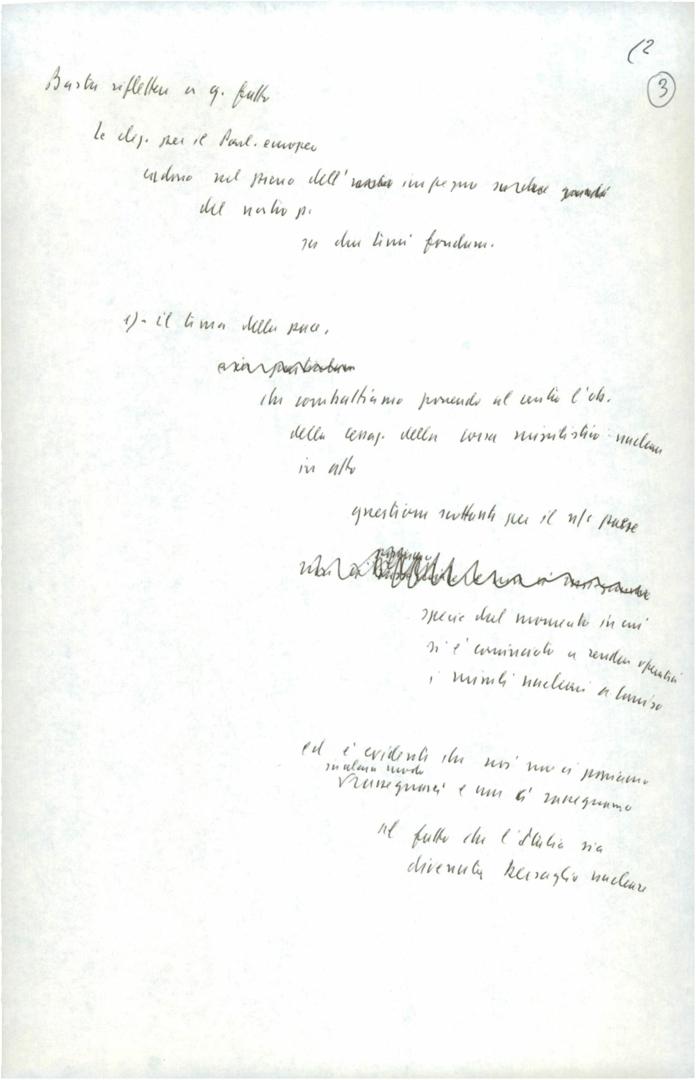 (2
3
Basta riflettere a q. fatto
le elez. per il Parl. europeo
cadono nel pieno dell' impegno
del nostro p.
su due temi fondam.
1)- il tema della pace,
che combattiamo ponendo al centro l'ob.
della cessaz. della corsa missilistico-nucleare
in atto
questione scottante per il n/s paese
specie dal momento in cui
si è cominciato a rendere operativi
i missili nucleari a Comiso
ed è evidente che noi non ci possiamo
in alcun modo
rassegnarci e non ci rassegniamo
al fatto che l'Italia sia
diventata bersaglio nucleare